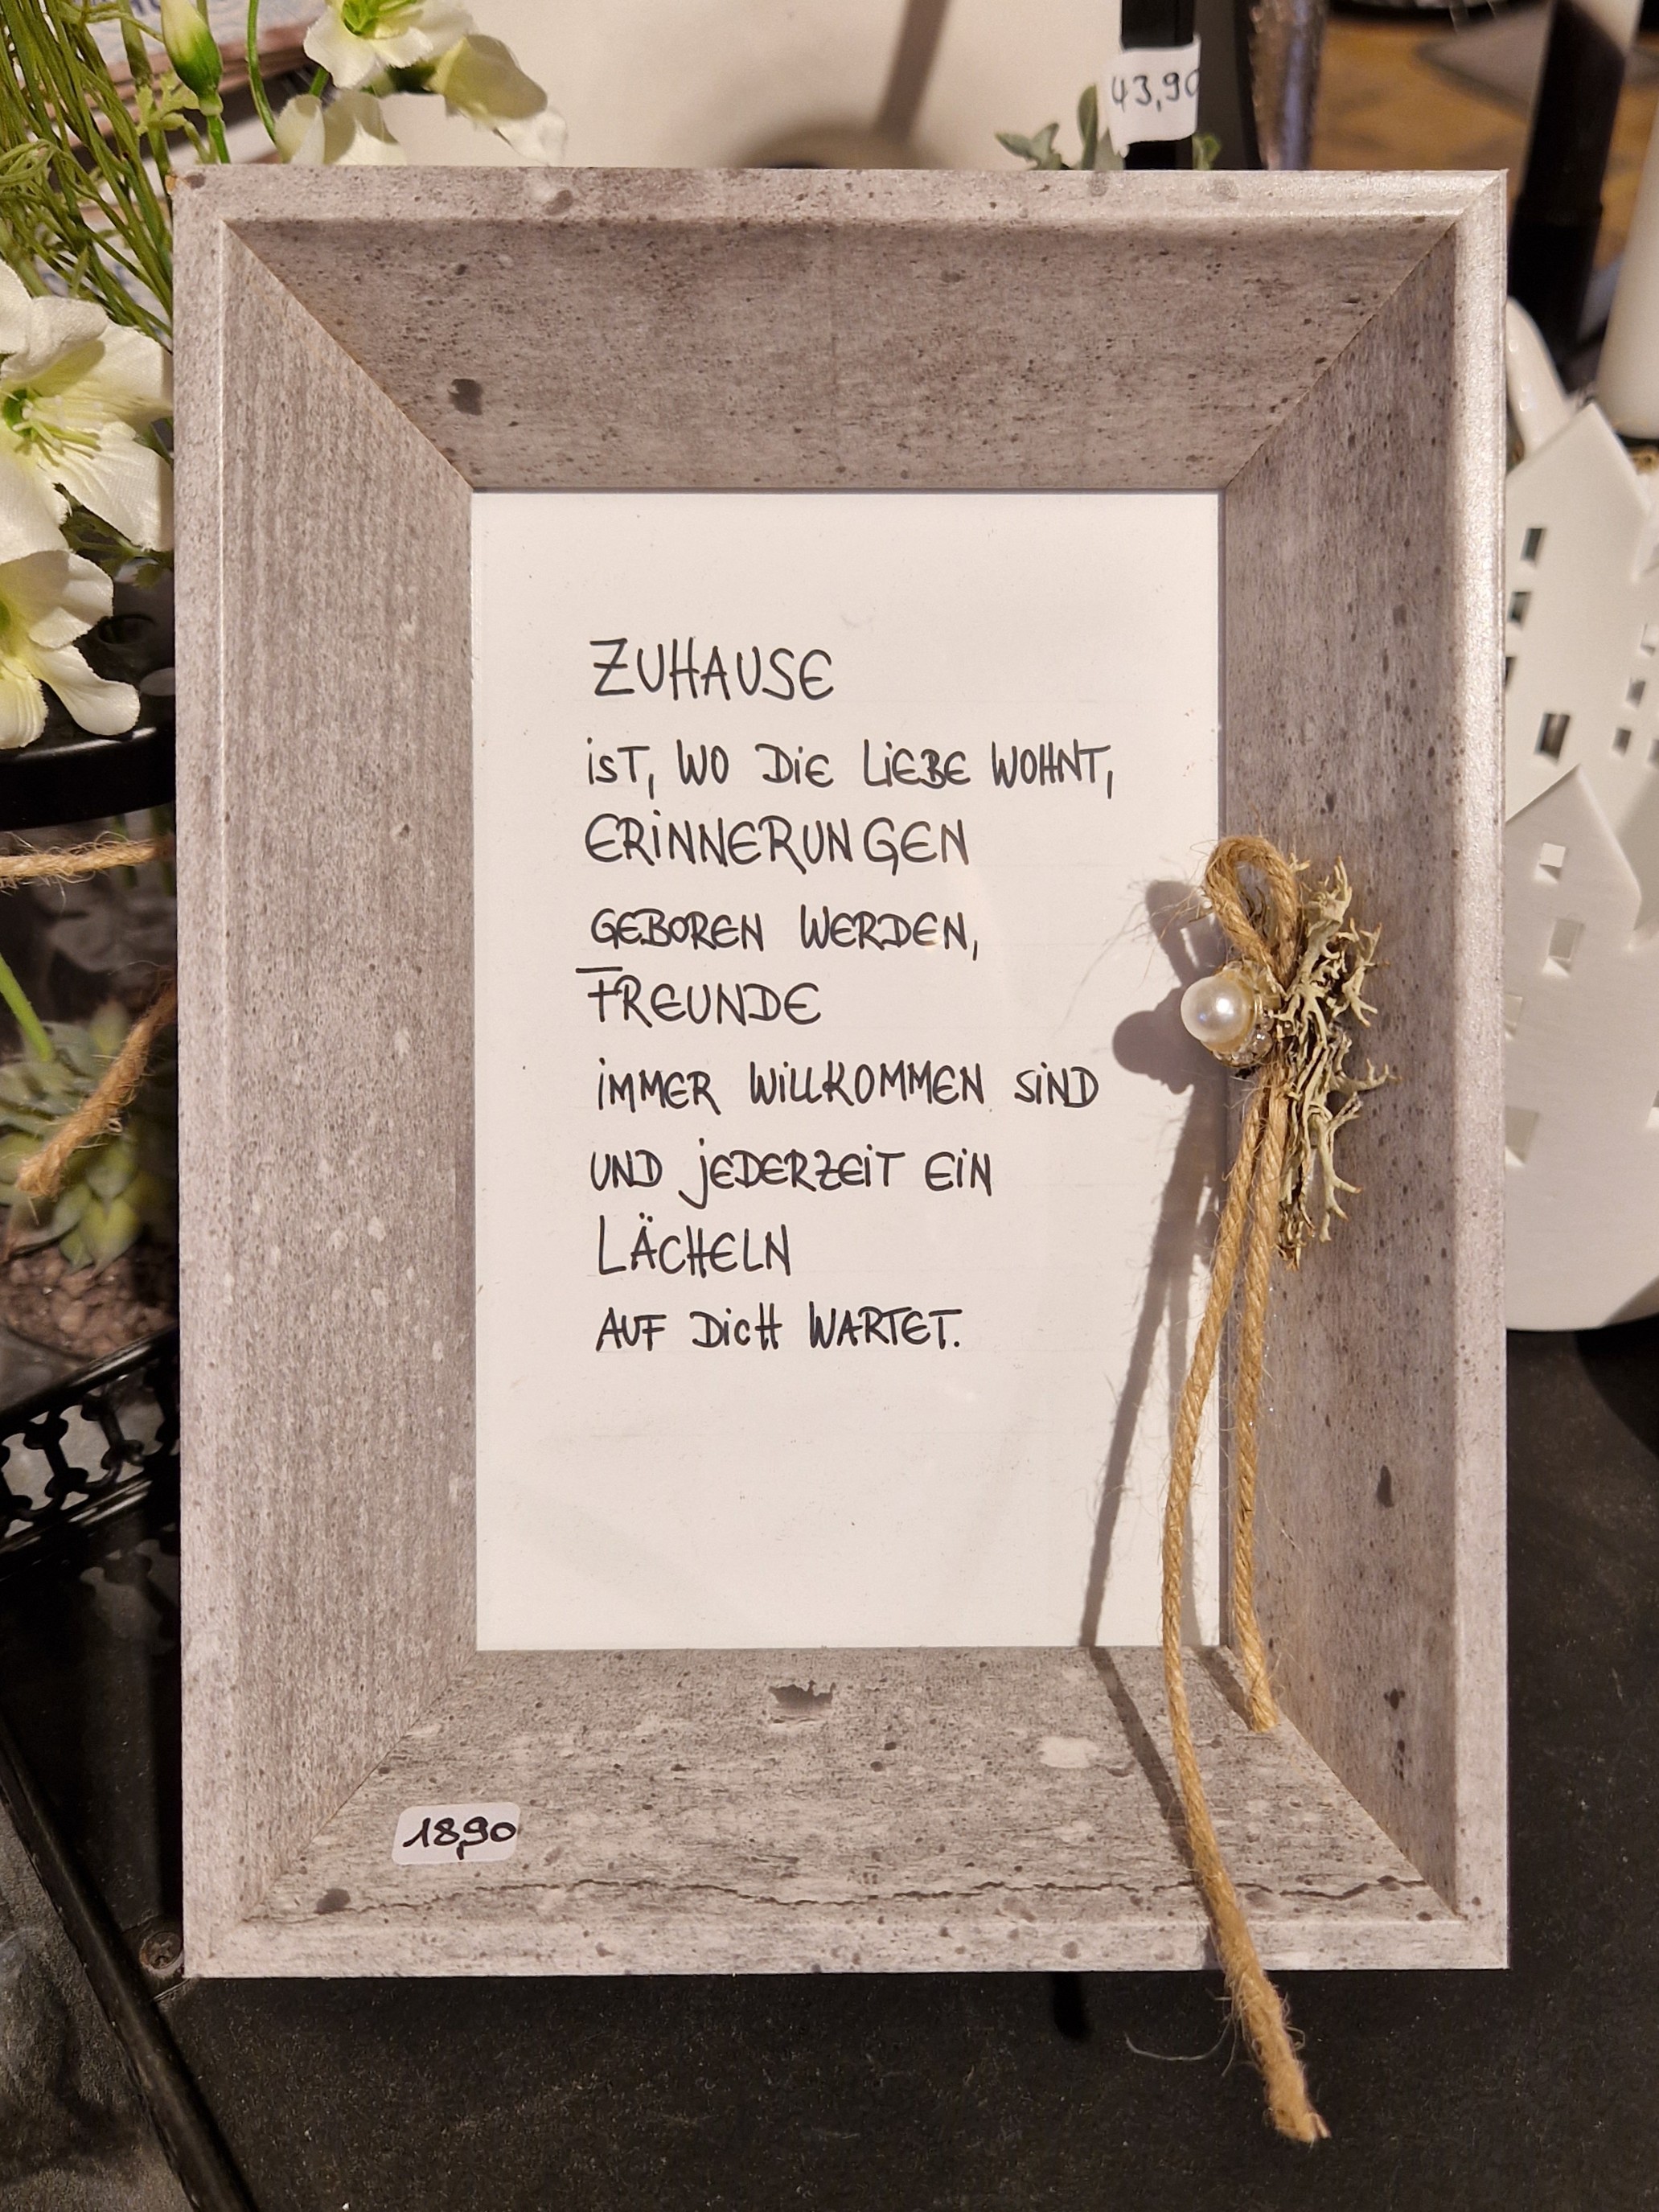 43,90
ZUHAUSE
iST, WO DiE LiEBE WOHNT,
ERiNNERUNGEN
GEBOREN WERDEN,
FREUNDE
iMMER WiLLKOMMEN SiND
UND jEDERZEiT EiN
LÄCHELN
AUF DiCH WARTET.
18,90